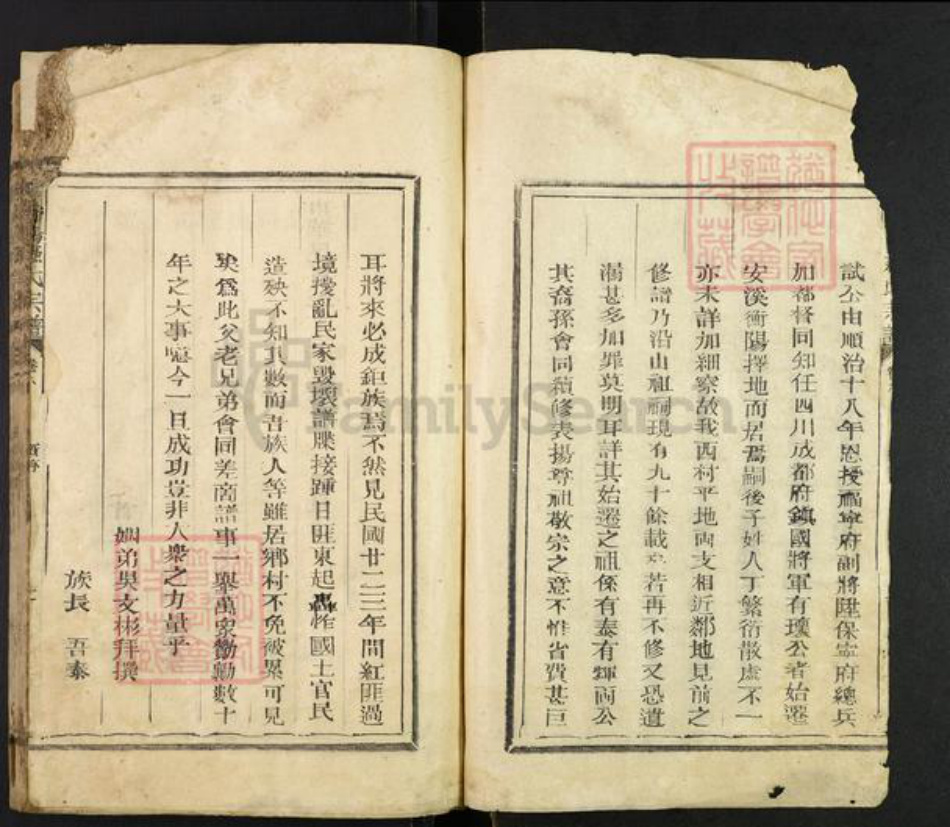 試公由順治十八年恩授福寧府副將陞保寧府總兵
加都督同知任四川成都府鎮國將軍有瓊公者始遷
安溪衝陽擇地而居焉嗣後子姓人丁繁衍散處不一
亦未詳加細察故我西村平地両支相近鄰地見前之
修譜乃沿山祖嗣現有九十餘載若再不修又恐遺
漏甚多加罪莫明耳詳其始遷之祖係有泰有輝両公
其裔孫會同續修表揚尊祖敬宗之意不惟省費甚巨
耳將來必成鉅族焉不然見民國廿二三年間紅匪過
境擾亂民家毀壞譜牒接踵日匪東起轟炸國土官民
造殃不知其數而吾族人等雖居鄉村不免被累可見
矣為此父老兄弟會同差商譜事一舉萬眾勷勷數十
年之大事噫今一旦成功豈非人衆之力量乎
姻弟吳文彬拜撰
族長 吾泰
氏宗譜
FamilySearch
譜學會
藏